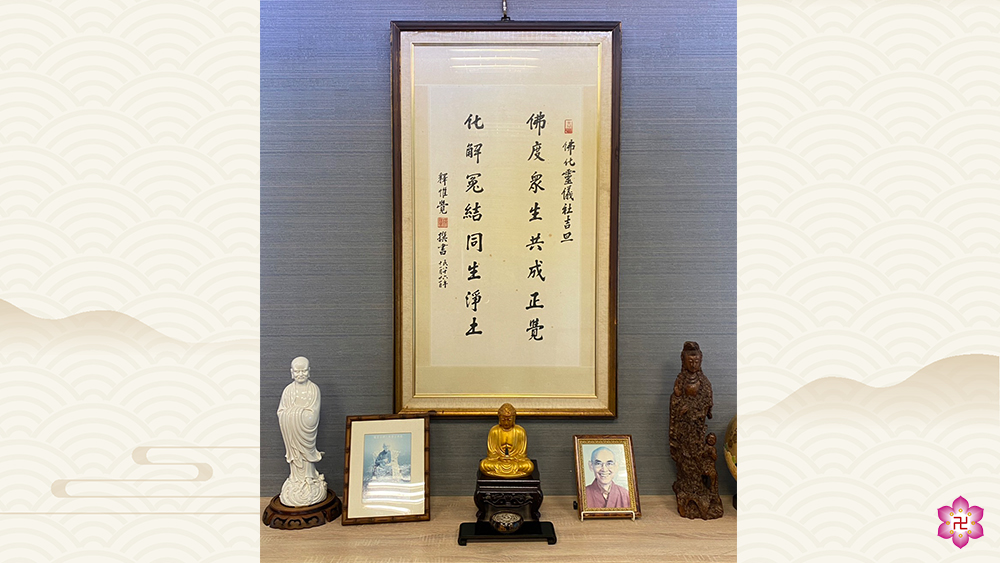 佛化靈儀社吉旦
佛度衆生共成正覺
化解冤結同生淨土
釋惟覺
撰書
卍